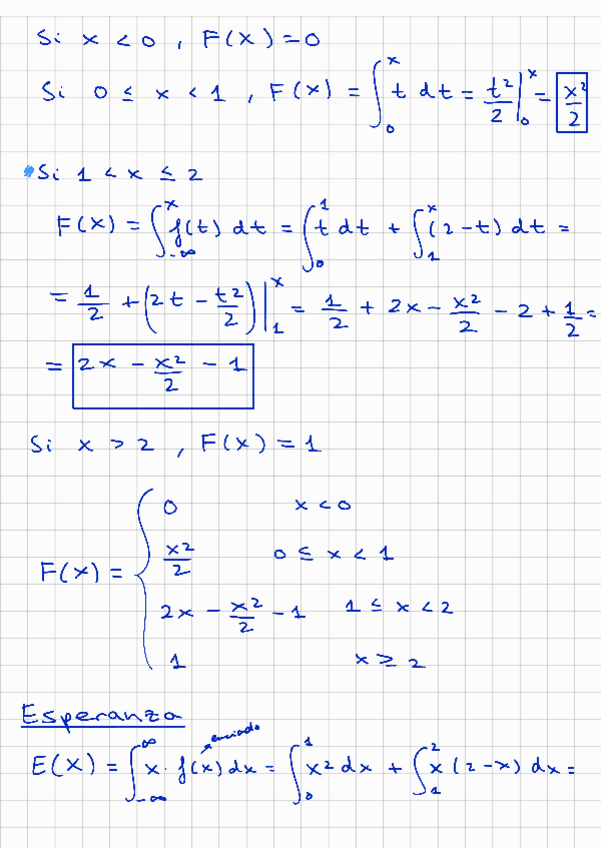 Si x < 0 , F(x) = 0
Si 0 ≤ x < 1 , F(x) = ∫₀ˣ t dt = t²/2 |₀ˣ = x²/2
* Si 1 < x ≤ 2
F(x) = ∫₋∞ˣ f(t) dt = ∫₀¹ t dt + ∫₁ˣ (2-t) dt =
= 1/2 + (2t - t²/2) |₁ˣ = 1/2 + 2x - x²/2 - 2 + 1/2 =
= 2x - x²/2 - 1
Si x > 2 , F(x) = 1
F(x) = {
0 x < 0
x²/2 0 ≤ x < 1
2x - x²/2 - 1 1 ≤ x < 2
1 x ≥ 2
Esperanza
enunciado
E(x) = ∫₋∞^∞ x · f(x) dx = ∫₀¹ x² dx + ∫₁² x (2-x) dx =